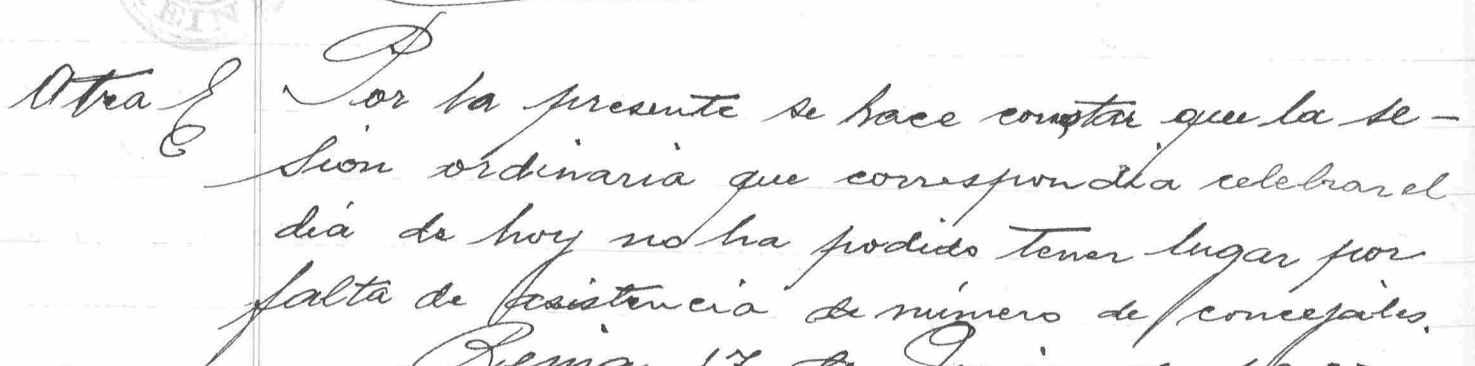 Otra Por la presente se hace constar que la se-
sion ordinaria que correspondia celebrar el
dia de hoy no ha podido tener lugar por
falta de asistencia de número de concejales.
Reina 17 de